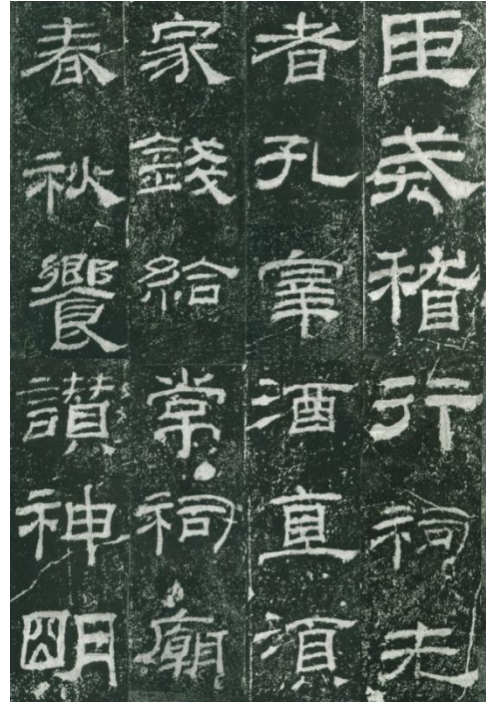 臣稽行祠先
者孔宰酒直須
家錢給常祠廟
春秋饗讚神明